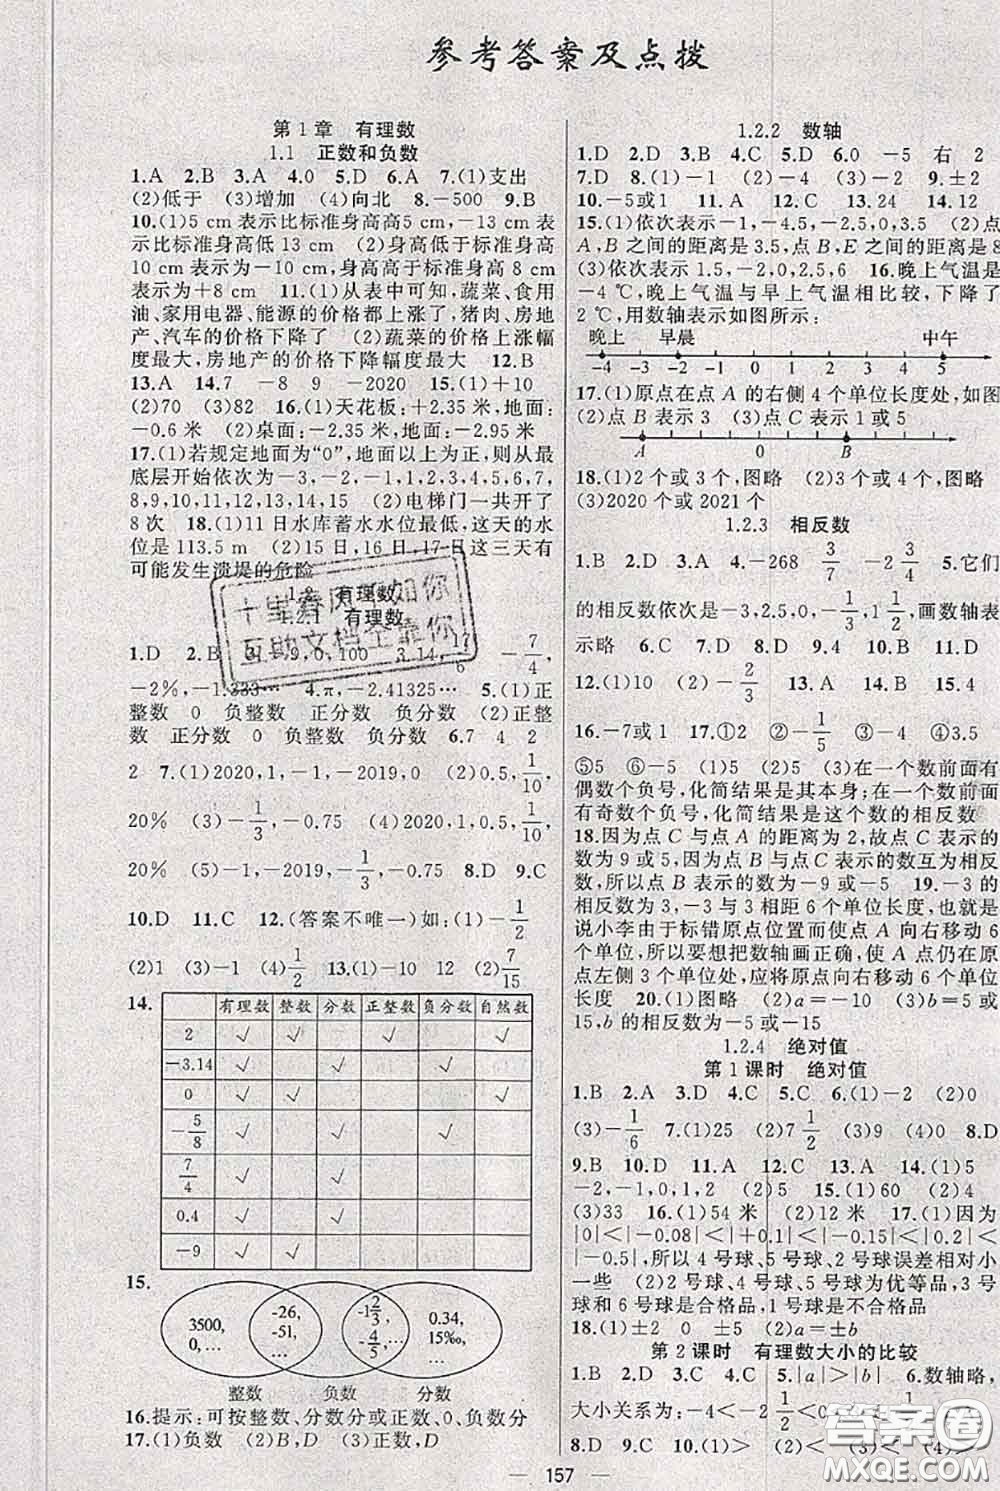 参考答案及点拨
第1章 有理数
1.1 正数和负数
1.A 2.B 3.A 4.0 5.D 6.A 7.(1)支出
(2)低于 (3)增加 (4)向北 8.-500 9.B
10.(1)5 cm表示比标准身高高5 cm,-13 cm表
示比标准身高低13 cm (2)身高低于标准身高
10 cm表示为-10 cm,身高高于标准身高8 cm
表示为+8 cm 11.(1)从表中可知,蔬菜、食用
油、家用电器、能源的价格都上涨了,猪肉、房地
产、汽车的价格下降了 (2)蔬菜的价格上涨幅
度最大,房地产的价格下降幅度最大 12.B
13.A 14.7 -8 9 -2020 15.(1)+10
(2)70 (3)82 16.(1)天花板:+2.35米,地面:
-0.6米 (2)桌面:-2.35米,地面:-2.95米
17.(1)若规定地面为“0”,地面以上为正,则从最
底层开始依次为-3,-2,-1,1,2,3,4,5,6,7,
8,9,10,11,12,13,14,15 (2)电梯门一共开了
8次 18.(1)11日水库蓄水水位最低,这天的水
位是113.5 m (2)15日,16日,17日这三天有
可能发生溃堤的危险
1.2 有理数
1.2.1 有理数
1.D 2.B 9,0,100 3.14, -7/4,
-2%,-1.333… 4.π,-2.41325… 5.(1)正
整数 0 负整数 正分数 负分数 (2)正整
数 正分数 0 负整数 负分数 6.7 4 2
2 7.(1)2020,1,-1,-2019,0 (2)0.5,1/10,
20% (3)-1/3,-0.75 (4)2020,1,0.5,1/10,
20% (5)-1,-2019,-1/3,-0.75 8.D 9.C
10.D 11.C 12.(答案不唯一)如:(1)-1/2
(2)1 (3)-1 (4)1/2 13.(1)-10 12 (2)7/15
14.
有理数 整数 分数 正整数 负分数 自然数
2 √ √ √ √
-3.14 √ √ √
0 √ √ √
-5/8 √ √ √
7/4 √ √
0.4 √ √
-9 √ √
15.
3500, 0,… -26, -51, … -1 2/3 -4/5 … 0.34, 15‰, …
整数 负数 分数
16.提示:可按整数、分数分或正数、0、负数分
17.(1)负数 (2)B,D (3)正数,D
1.2.2 数轴
1.D 2.D 3.B 4.C 5.D 6.0 -5 右 2
7.D 8.(1)-1 (2)-4 (3)-2 9.±2
10.-5或1 11.A 12.C 13.24 14.12
15.(1)依次表示-1,-4.5,-2.5,0,3.5 (2)点
A,B之间的距离是3.5,点B,E之间的距离是8
(3)依次表示1.5,-2,0,2.5,6 16.晚上气温是
-4 ℃,晚上气温与早上气温相比较,下降了
2 ℃,用数轴表示如图所示:
晚上 早晨 中午
-4 -3 -2 -1 0 1 2 3 4 5
17.(1)原点在点A的右侧4个单位长度处,如图
(2)点B表示3 (3)点C表示1或5
A 0 B
18.(1)2个或3个,图略 (2)3个或4个,图略
(3)2020个或2021个
1.2.3 相反数
1.B 2.D 3.A 4.-268 3/7 -2 3/4 5.它们
的相反数依次是-3,2.5,0,-1/3,1 1/4,画数轴表
示略 6.C 7.D 8.D 9.D 10.B 11.D
12.(1)10 (2)-2/3 13.A 14.B 15.4
16.-7或1 17.①2 ②-1/5 ③-4 ④3.5
⑤5 ⑥-5 (1)5 (2)5 (3)在一个数前面有
偶数个负号,化简结果是其本身;在一个数前面
有奇数个负号,化简结果是这个数的相反数
18.因为点C与点A的距离为2,故点C表示的
数为9或5,因为点B与点C表示的数互为相反
数,所以点B表示的数为-9或-5 19.-3的
相反数为3,-3与3相距6个单位长度,也就是
说小李由于标错原点位置而使点A向右移动6
个单位,所以要想把数轴画正确,使A点仍在原
点左侧3个单位处,应将原点向右移动6个单位
长度 20.(1)图略 (2)a=-10 (3)b=5或
15,b的相反数为-5或-15
1.2.4 绝对值
第1课时 绝对值
1.B 2.A 3.D 4.C 5.C 6.(1)-2 (2)0
(3)-1/6 7.(1)25 (2)7 1/2 (3)9 (4)0 8.D
9.B 10.D 11.A 12.C 13.A 14.(1)5
-2,-1,0,1,2 15.(1)60 (2)4
(3)33 16.(1)54米 (2)12米 17.(1)因为
|0|<|-0.08|<|+0.1|<|-0.15|<|0.2|<
|-0.5|,所以4号球、5号球、2号球误差相对小
一些 (2)2号球、4号球、5号球为优等品,3号
球和6号球是合格品,1号球是不合格品
18.(1)±2 0 ±5 (2)a=±b
第2课时 有理数大小的比较
1.B 2.D 3.C 4.C 5.|a|>|b| 6.数轴略,
大小关系为:-4<-2 1/2<0
8.D 9.C 10.(1)> (2)< (3)< (4)>
157
十里春风不如你
互助文档全靠你
答案圈
MXQE.COM